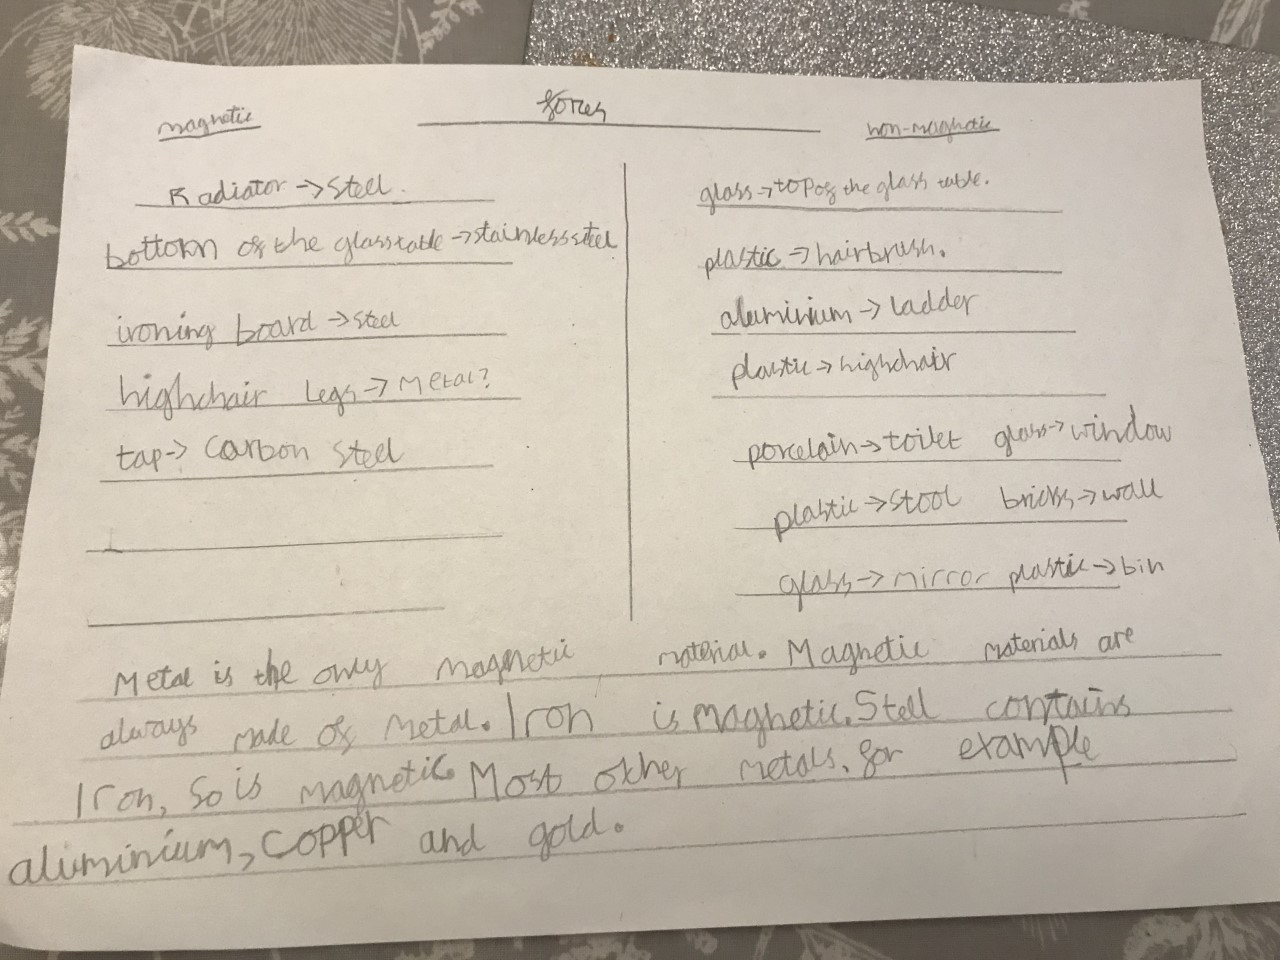 forces
magnetic
non-magnetic
Radiator → steel.
bottom of the glass table → stainless steel
ironing board → steel
highchair legs → metal?
tap → carbon steel
glass → top of the glass table.
plastic → hairbrush.
aluminium → ladder
plastic → highchair
porcelain → toilet glass → window
plastic → stool bricks → wall
glass → mirror plastic → bin
Metal is the only magnetic material. Magnetic materials are
always made of metal. Iron is magnetic. Stell contains
Iron, so is magnetic. Most other metals, for example
aluminium, copper and gold.